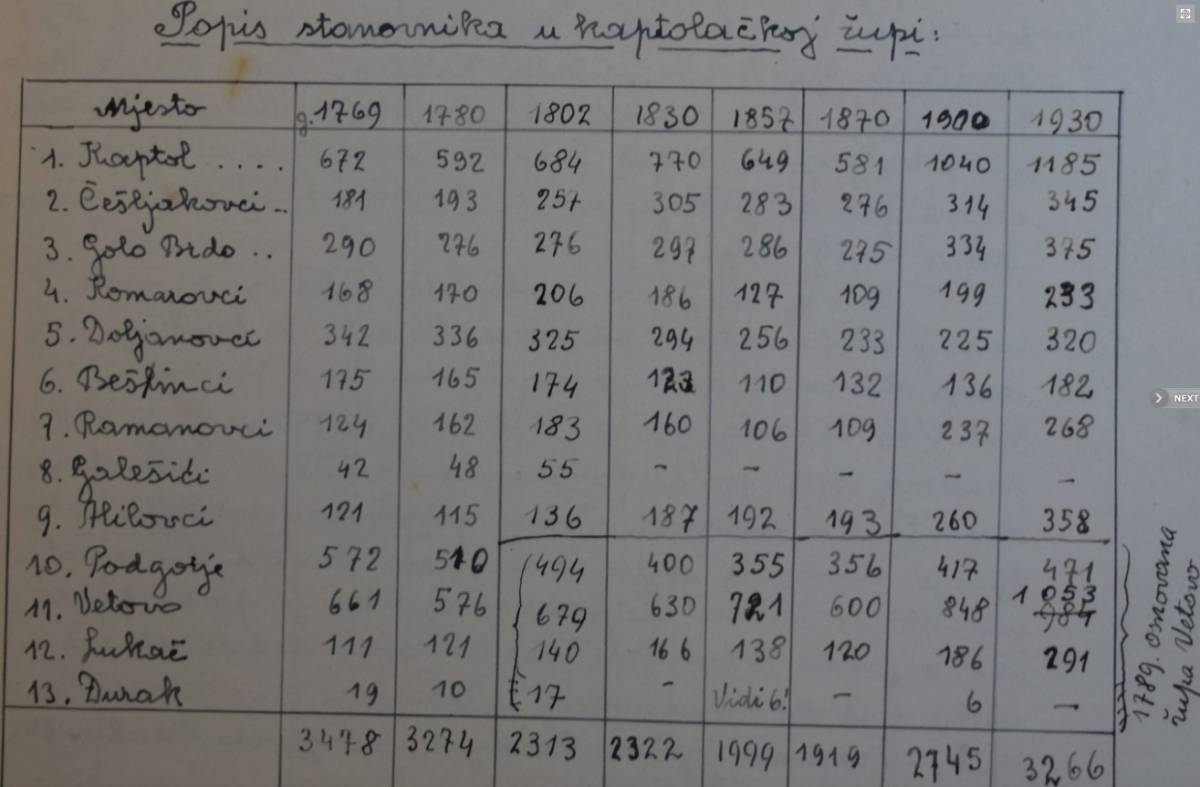 Popis stanovnika u kaptolačkoj župi:
Mjesto g. 1769 1780 1802 1830 1857 1870 1900 1930
1. Kaptol .... 672 592 684 770 649 581 1040 1185
2. Češljakovci .. 181 193 257 305 283 276 314 345
3. Golo Brdo .. 290 276 276 297 286 275 334 375
4. Komarovci 168 170 206 186 127 109 199 233
5. Doljanovci 342 336 325 294 256 233 225 320
6. Bešlinci 175 165 174 123 110 132 136 182
7. Ramanovci 124 162 183 160 106 109 237 268
8. Galešići 42 48 55 - - - - -
9. Alilovci 121 115 136 187 192 193 260 358
10. Podgorje 572 510 494 400 355 356 417 471
11. Vetovo 661 576 679 630 721 600 848 1053 984
12. Lukač 111 121 140 166 138 120 186 291
13. Durak 19 10 17 - Vidi 6! - 6 -
3478 3274 2313 2322 1999 1919 2745 3266
1789. osnovana
župa Vetovo
NEXT